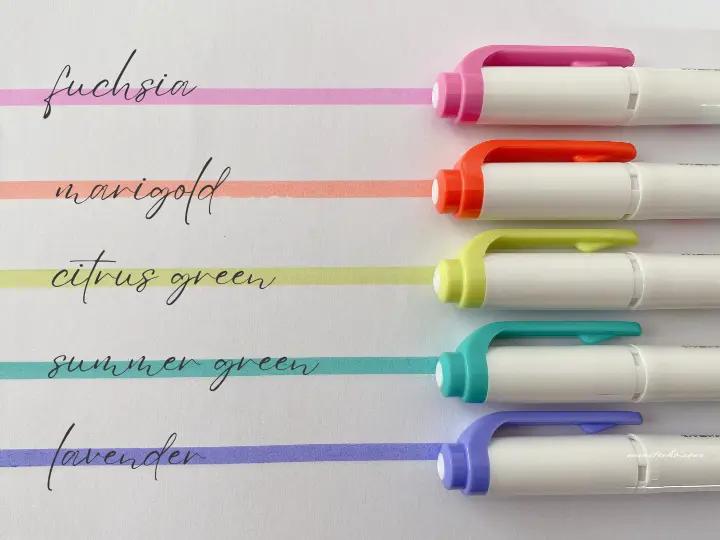 fuchsia
marigold
citrus green
summer green
lavender